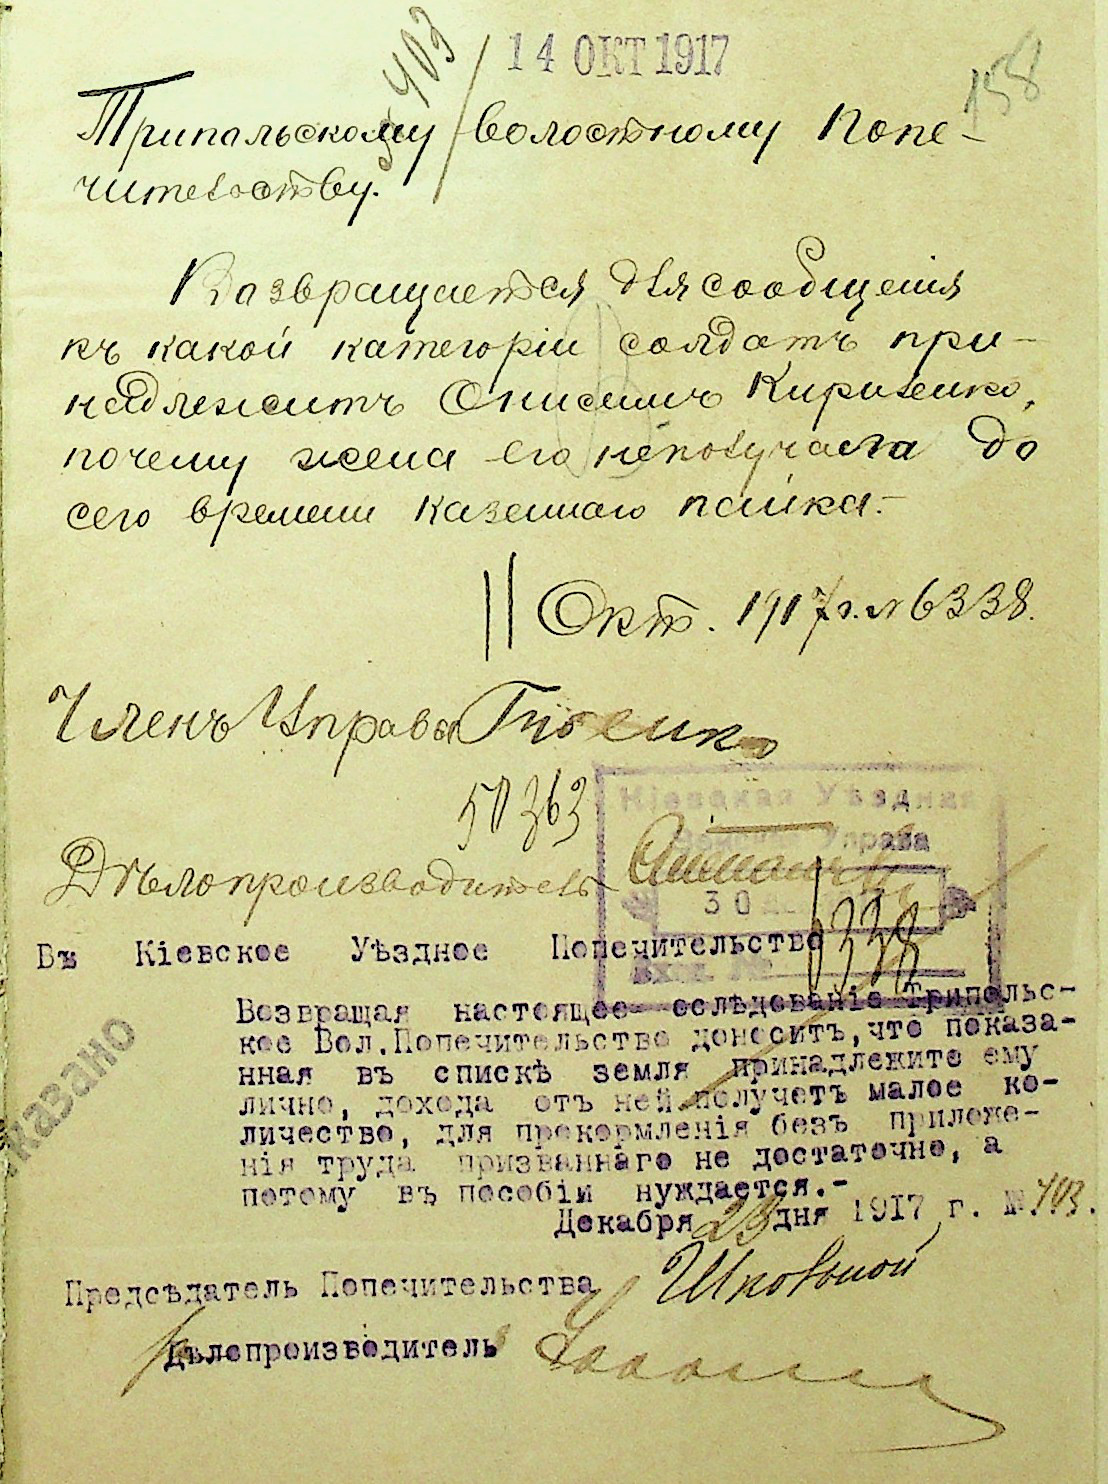 403
14 ОКТ 1917
158
Трипольскому волостному Попе-
чительству.
Возвращается для сообщенія
къ какой категоріи солдатъ при-
надлежитъ Онисимъ Кириченко,
почему жена его неполучала до
сего времени казеннаго пайка.-
11 Окт. 1917 г. № 6338.
Членъ Управы
50363
Кіевская Уѣздная
Управа
30
Вход. № 6338
Дѣлопроизводитель
Въ Кіевское Уѣздное Попечительство
Возвращая настоящее ослѣдованіе Трипольс-
кое Вол.Попечительство доноситъ,что показа-
нная въ спискѣ земля принадлежитъ ему
лично, дохода отъ ней получетъ малое ко-
личество, для прокормленія безъ приложе-
нія труда призваннаго не достаточно, а
потому въ пособіи нуждается.-
Декабря 23 дня 1917 г. № 403.
казано
Предсѣдатель Попечительства
Дѣлопроизводитель